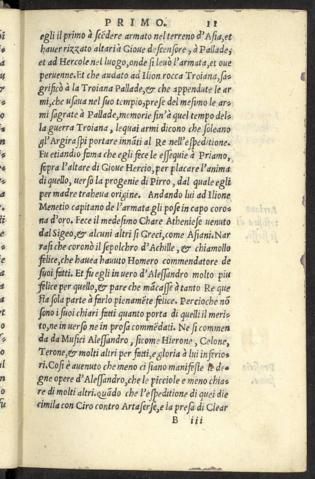 PRIMO. 11
egli il primo à scēdere armato nel terreno d'Asia, et
hauer rizzato altari à Gioue descensore, à Pallade,
et ad Hercole nel luogo, onde si leuò l'armata, et oue
peruenne. Et che andato ad Ilion rocca Troiana, sa-
grificò à la Troiana Pallade, & che appendute le ar-
mi, che usaua nel suo tempio, prese del mesimo le ar-
mi sagrate à Pallade, memorie fin'à quel tempo del-
la guerra Troiana, lequai armi dicono che soleano
gl'Argiraspi portare innāti al Re nell'espeditione.
Fu etiandio fama che egli fece le essequie à Priamo,
sopra l'altare di Gioue Hercio, per placare l'anima
di quello, uerso la progenie di Pirro, dal quale egli
per madre traheua origine. Andando lui ad Ilione
Menetio capitano de l'armata gli pose in capo coro-
na d'oro. Fece il medesimo Chare Atheniese uenuto
dal Sigeo, & alcuni altri si Greci, come Asiani. Nar
rasi che coronò il sepolchro d'Achille, & chiamollo
felice, che haueа hauuto Homero commendatore de
suoi fatti. Et fu egli in uero d'Alessandro molto piu
felice per quello, & pare che mācasse à tanto Re que
sta sola parte à farlo pienamēte felice. Percioche nō
sono i suoi chiari fatti quanto porta di quelli il meri-
to, ne in uerso ne in prosa commēdati. Ne si commen
da da Musici Alessandro, sicome Hierone, Celone,
Terone, & molti altri per fatti, e gloria à lui inferio-
ri. Cosi è auenuto che meno ci siano manifeste le de-
gne opere d'Alessandro, che le picciole e meno chia-
re di molti altri. quādo che l'espeditione di quei die
cimila con Ciro contro Artaserse, e la presa di Clear
B iii